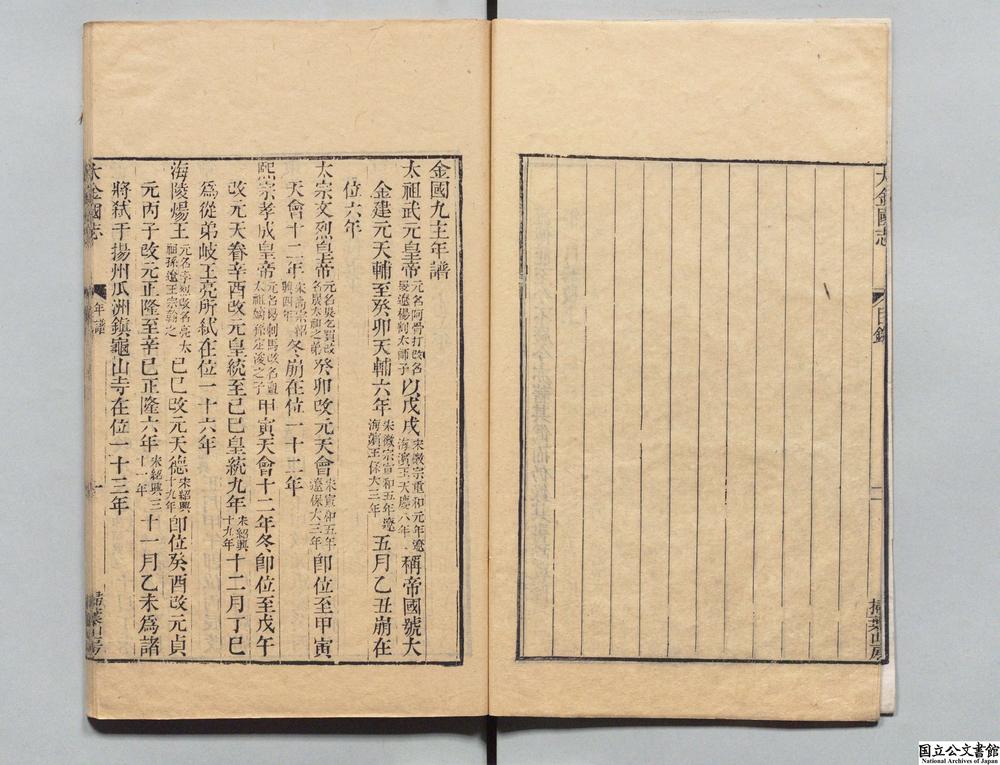 大金國志
目錄
二
掃葉山房
金國九主年譜
太祖武元皇帝元名阿骨打改名旻遼楊割太師子以戊戌宋徽宗重和元年遼海濱王天慶八年稱帝國號大
金建元天輔至癸卯天輔六年宋徽宗宣和五年遼海濱王保大三年五月乙丑崩在
位六年
太宗文烈皇帝元名吳乞買改名晟太祖之弟癸卯改元天會宋宣和五年遼保大三年即位至甲寅
天會十二年宋高宗紹興四年冬崩在位一十二年
熙宗孝成皇帝元名曷剌馬改名亶太祖嫡孫定浚之子甲寅天會十二年冬即位至戊午
改元天眷辛酉改元皇統至己巳皇統九年宋紹興十九年十二月丁巳
爲從弟岐王亮所弑在位一十六年
海陵煬王元名孛烈改名亮太祖孫遼王宗幹之己巳改元天德宋紹興十九年即位癸酉改元貞
元丙子改元正隆至辛巳正隆六年宋紹興三十一年十一月乙未爲諸
將弑于揚州瓜洲鎮龜山寺在位一十三年
大金國志
年譜
一
掃葉山房
国立公文書館
National Archives of Japan